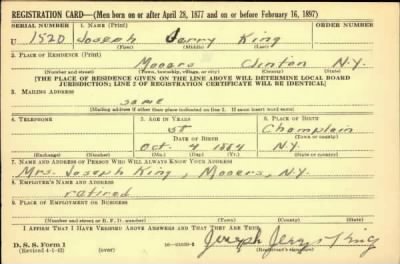 REGISTRATION CARD—(Men born on or after April 28, 1877 and on or before February 16, 1897)
SERIAL NUMBER 1. NAME (Print) ORDER NUMBER
U 1920 Joseph Jerry King
(First) (Middle) (Last)
2. PLACE OF RESIDENCE (Print)
Mooers Clinton N.Y.
(Number and street) (Town, township, village, or city) (County) (State)
[THE PLACE OF RESIDENCE GIVEN ON THE LINE ABOVE WILL DETERMINE LOCAL BOARD
JURISDICTION; LINE 2 OF REGISTRATION CERTIFICATE WILL BE IDENTICAL]
3. MAILING ADDRESS
same
[Mailing address if other than place indicated on line 2. If same insert word same]
4. TELEPHONE 5. AGE IN YEARS 6. PLACE OF BIRTH
57 Champlain
DATE OF BIRTH (Town or county)
Oct. 4 1884 N.Y.
(Exchange) (Number) (Mo.) (Day) (Yr.) (State or country)
7. NAME AND ADDRESS OF PERSON WHO WILL ALWAYS KNOW YOUR ADDRESS
Mrs. Joseph King, Mooers, N.Y.
8. EMPLOYER'S NAME AND ADDRESS
retired
9. PLACE OF EMPLOYMENT OR BUSINESS
(Number and street or R. F. D. number) (Town) (County) (State)
I AFFIRM THAT I HAVE VERIFIED ABOVE ANSWERS AND THAT THEY ARE TRUE.
D. S. S. Form 1
(Revised 4-1-42) (over) Joseph Jerry King
(Registrant's signature)